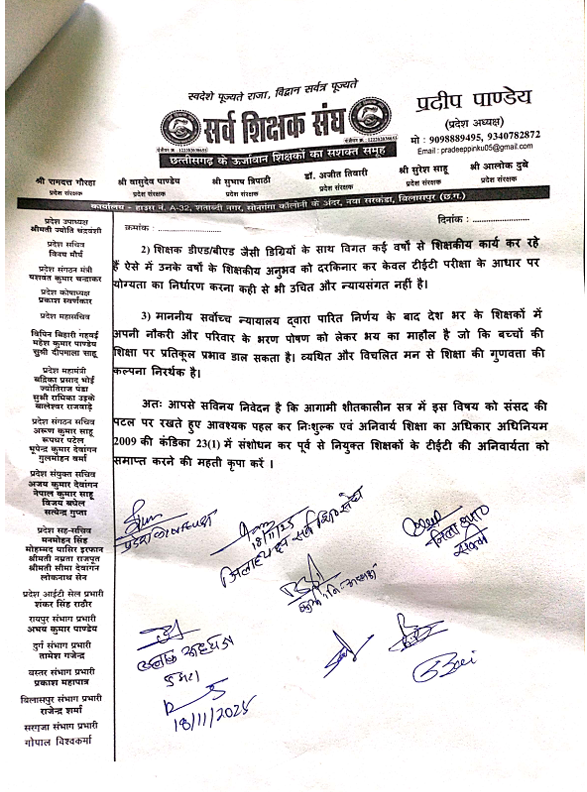 स्वदेशे पूज्यते राजा, विद्वान सर्वत्र पूज्यते
सर्व शिक्षक संघ
छत्तीसगढ़ के ऊर्जावान शिक्षकों का सशक्त समूह
प्रदीप पाण्डेय
(प्रदेश अध्यक्ष)
मो : 9098889495, 9340782872
Email : pradeeppinku05@gmail.com
श्री रामदत्त गौरहा श्री वासुदेव पाण्डेय श्री सुभाष त्रिपाठी डॉ. अजीत तिवारी श्री सुरेश साहू श्री आलोक दुबे
प्रदेश संरक्षक प्रदेश संरक्षक प्रदेश संरक्षक प्रदेश संरक्षक प्रदेश संरक्षक प्रदेश संरक्षक
कार्यालय - हाउस नं. A-32, शताब्दी नगर, सोनगंगा कॉलोनी के अंदर, नया सरकंडा, बिलासपुर (छ.ग.)
क्रमांक : दिनांक :
प्रदेश उपाध्यक्ष
श्रीमती ज्योति चंद्रवंशी
प्रदेश सचिव
विनय मौर्य
प्रदेश संगठन मंत्री
यशवंत कुमार चन्द्राकर
प्रदेश कोषाध्यक्ष
प्रकाश स्वर्णकार
प्रदेश महासचिव
विपिन बिहारी गहवई
महेश कुमार पाण्डेय
सुश्री दीपमाला साहू
प्रदेश महामंत्री
बद्रिका प्रसाद भोई
ज्योतिराज पंडा
सुश्री राधिका उइके
बालेश्वर राजवाड़े
प्रदेश संगठन सचिव
अरूण कुमार साहू
रूपधर पटेल
भूपेन्द्र कुमार देवांगन
गुलमोहन वर्मा
प्रदेश संयुक्त सचिव
अजय कुमार देवांगन
नेपाल कुमार साहू
विजय बघेल
सत्येन्द्र गुप्ता
प्रदेश सह-सचिव
मनमोहन सिंह
मोहम्मद यासिर इरफान
श्रीमती नम्रता राजपूत
श्रीमती सीमा देवांगन
लोकनाथ सेन
प्रदेश आईटी सेल प्रभारी
शंकर सिंह राठौर
रायपुर संभाग प्रभारी
अभय कुमार पाण्डेय
दुर्ग संभाग प्रभारी
तामेश गजेन्द्र
बस्तर संभाग प्रभारी
प्रकाश महापात्र
बिलासपुर संभाग प्रभारी
राजेन्द्र शर्मा
सरगुजा संभाग प्रभारी
गोपाल विश्वकर्मा
2) शिक्षक डीएड/बीएड जैसी डिग्रियों के साथ विगत कई वर्षों से शिक्षकीय कार्य कर रहे
हैं ऐसे में उनके वर्षों के शिक्षकीय अनुभव को दरकिनार कर केवल टीईटी परीक्षा के आधार पर
योग्यता का निर्धारण करना कही से भी उचित और न्यायसंगत नहीं है।
3) माननीय सर्वोच्च न्यायालय द्वारा पारित निर्णय के बाद देश भर के शिक्षकों में
अपनी नौकरी और परिवार के भरण पोषण को लेकर भय का माहौल है जो कि बच्चों की
शिक्षा पर प्रतिकूल प्रभाव डाल सकता है। व्यथित और विचलित मन से शिक्षा की गुणवता की
कल्पना निरर्थक है।
अतः आपसे सविनय निवेदन है कि आगामी शीतकालीन सत्र में इस विषय को संसद की
पटल पर रखते हुए आवश्यक पहल कर निःशुल्क एवं अनिवार्य शिक्षा का अधिकार अधिनियम
2009 की कंडिका 23(1) में संशोधन कर पूर्व से नियुक्त शिक्षकों के टीईटी की अनिवार्यता को
समाप्त करने की महती कृपा करें ।
18/11/25
18/11/2025